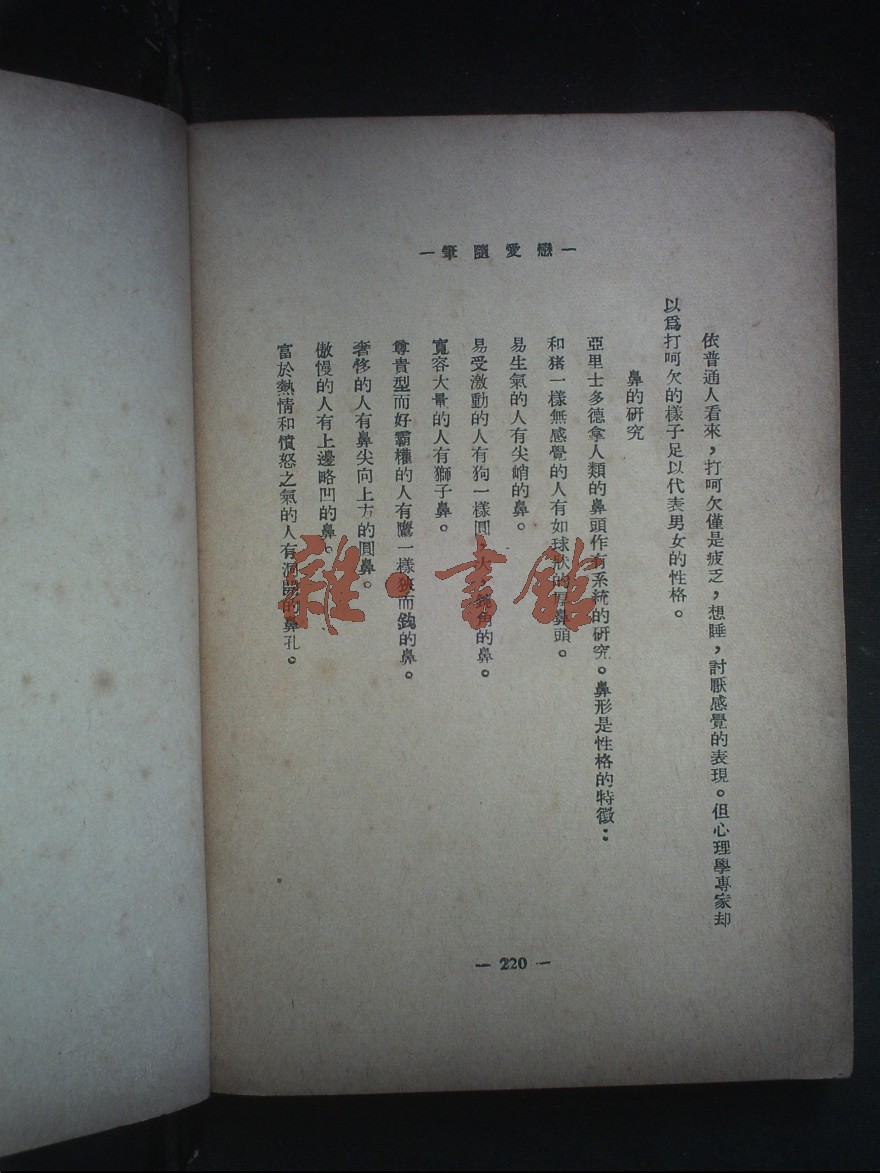 一戀愛隨筆一
依普通人看來，打呵欠僅是疲乏，想睡，討厭感覺的表現。但心理學專家却
以爲打呵欠的樣子足以代表男女的性格。
鼻的研究
亞里士多德拿人類的鼻頭作有系統的研究。鼻形是性格的特徵：
和猪一樣無感覺的人有如球狀的厚鼻頭。
易生氣的人有尖峭的鼻。
易受激動的人有狗一樣圓，大，角的鼻。
寬容大量的人有獅子鼻。
尊貴型而好霸權的人有鷹一樣狹而鈎的鼻。
奢侈的人有鼻尖向上方的圓鼻。
傲慢的人有上邊略凹的鼻。
富於熱情和憤怒之氣的人有洞開的鼻孔。
— 220 —
雜·書館